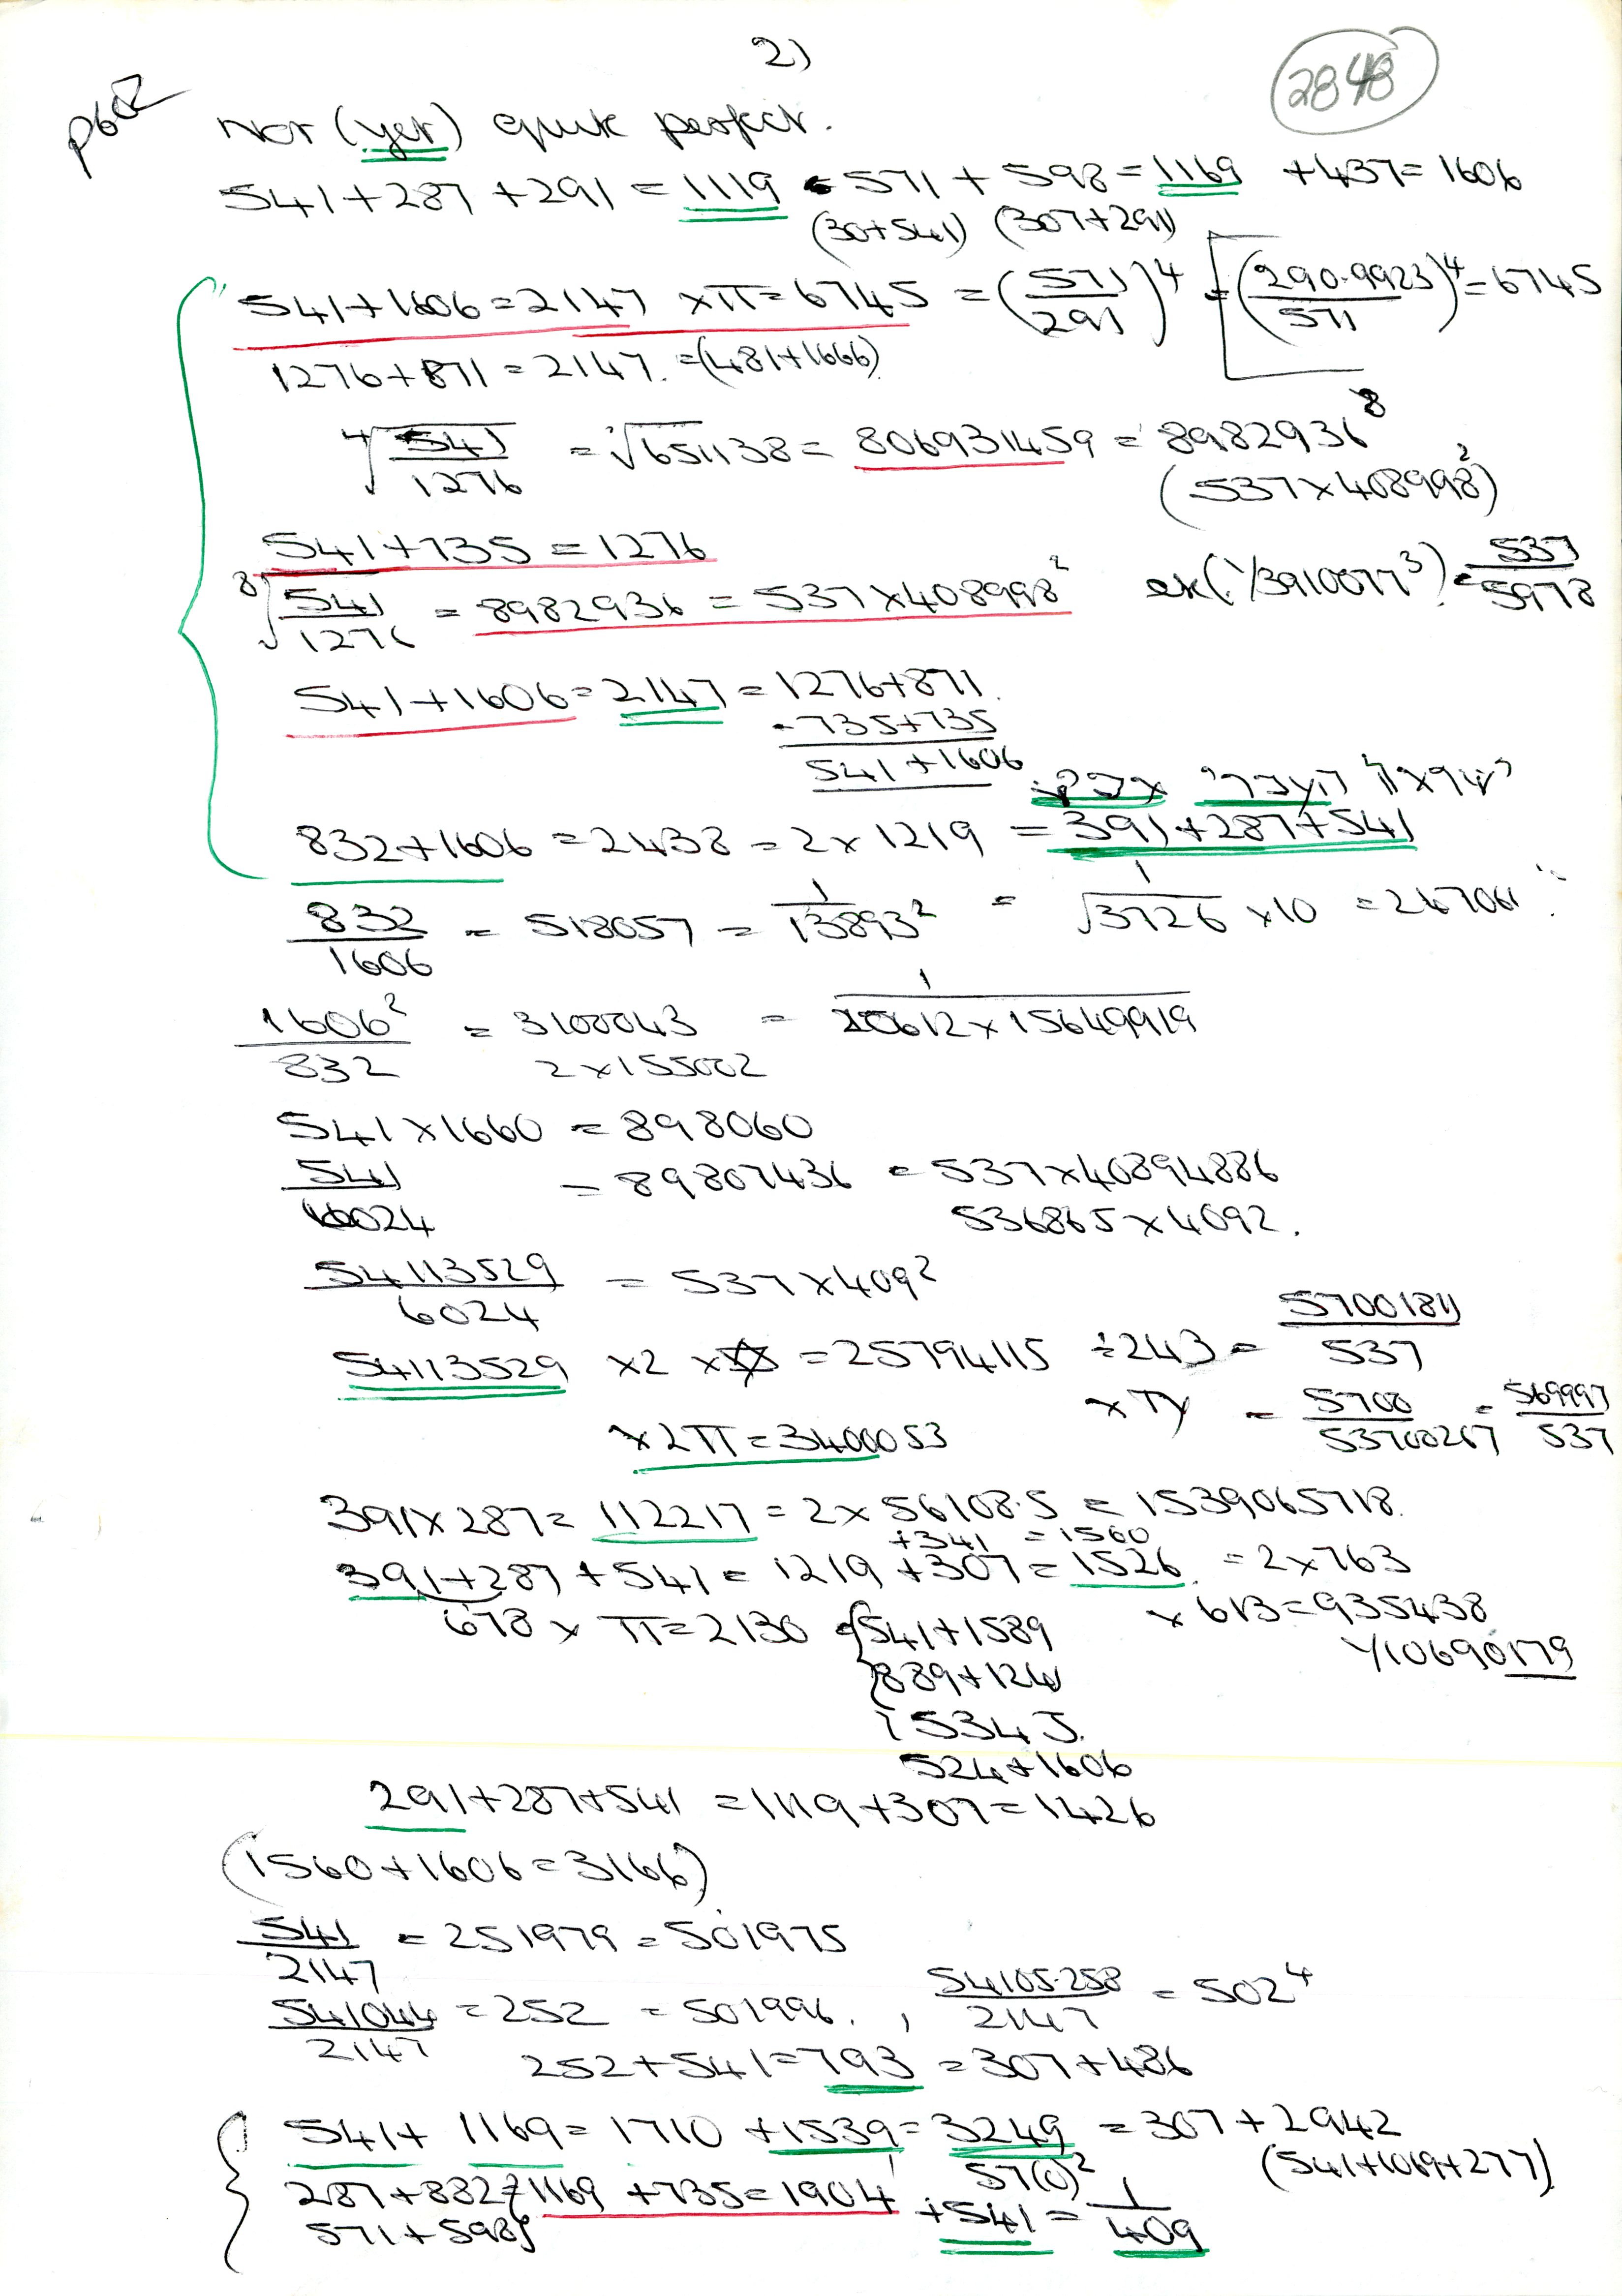 2)
2848
Not (yet) quite perfect.
541 + 287 + 291 = 1119 571 + 598 = 1169 + 437 = 1606
(30+541) (307+291)
541 + 1606 = 2147 × π = 6745 = (571/291)⁴ (290.9923/571)⁴ = 6745
1276 + 871 = 2147. = (481+1666)
⁴√541/1276 = √651138 = 806931459 = 8982936⁸
(537 × 408998²)
541 + 735 = 1276
⁸√541/1276 = 8982936 = 537 × 408998² ex(1/3910077³) = 537/5978
541 + 1606 = 2147 = 1276 + 871.
- 735 + 735
541 + 1606
832 + 1606 = 2438 = 2 × 1219 = 391 + 287 + 541
832/1606 = 518057 = 1/13893² = 1/√3726 × 10
1606²/832 = 3100043 = 1/20612 × 15649919
2 × 155002
541 × 1660 = 898060
541/6024 = 89807436 = 537 × 40894886
536865 × 4092.
54113529/6024 = 537 × 409²
54113529 × 2 × = 25794115 ÷ 243 = 57001811/537
× 2π = 3400053 = 5700/53700267 = 569997/537
391 × 287 = 112217 = 2 × 56108.5 = 1539065718.
+341 = 1560
391 + 287 + 541 = 1219 + 307 = 1526. = 2 × 763
678 × π = 2130 541 + 1589 × 613 = 935438
889 + 1241 1/10690179
1534 J.
524 + 1606
291 + 287 + 541 = 1119 + 307 = 1426
(1560 + 1606 = 3166)
541/2147 = 251979 = 501975
541044/2147 = 252 = 501996. , 54105.258/2147 = 502⁴
252 + 541 = 793 = 307 + 486
541 + 1169 = 1710 + 1539 = 3249 = 307 + 2942
57(0)² (541+1069+277)
287 + 882 = 1169 + 735 = 1904 + 541 = 1/409
571 + 598